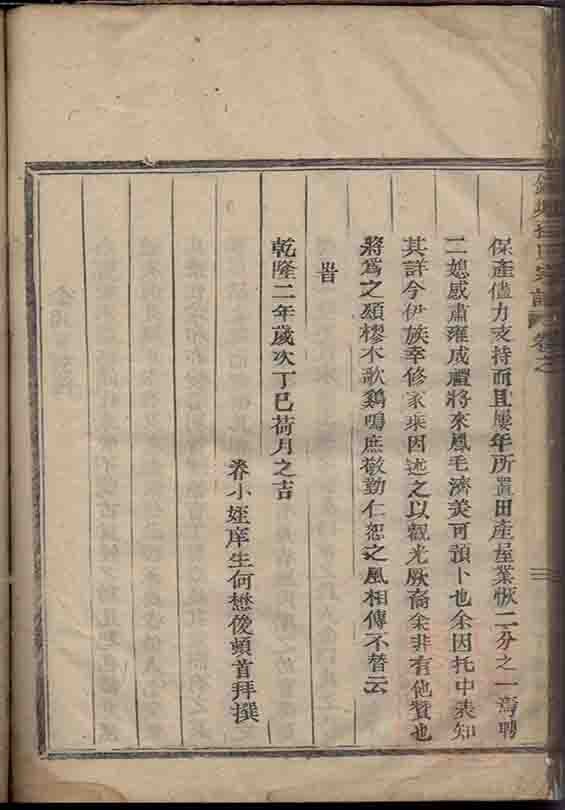 保產儘力支持而且屢年所置田產屋業恢二分之一焉聘
二媳咸肅雍成禮將來鳳毛濟美可預卜也余因托中表知
其詳今伊族幸修家乘因述之以觀光厥裔余非有他贊也
將為之頌樛木歌雞鳴庶敬勤仁恕之風相傳不替云
旹
乾隆二年歲次丁巳荷月之吉
眷小姪庠生何懋俊頓首拜撰
氏宗譜 卷之